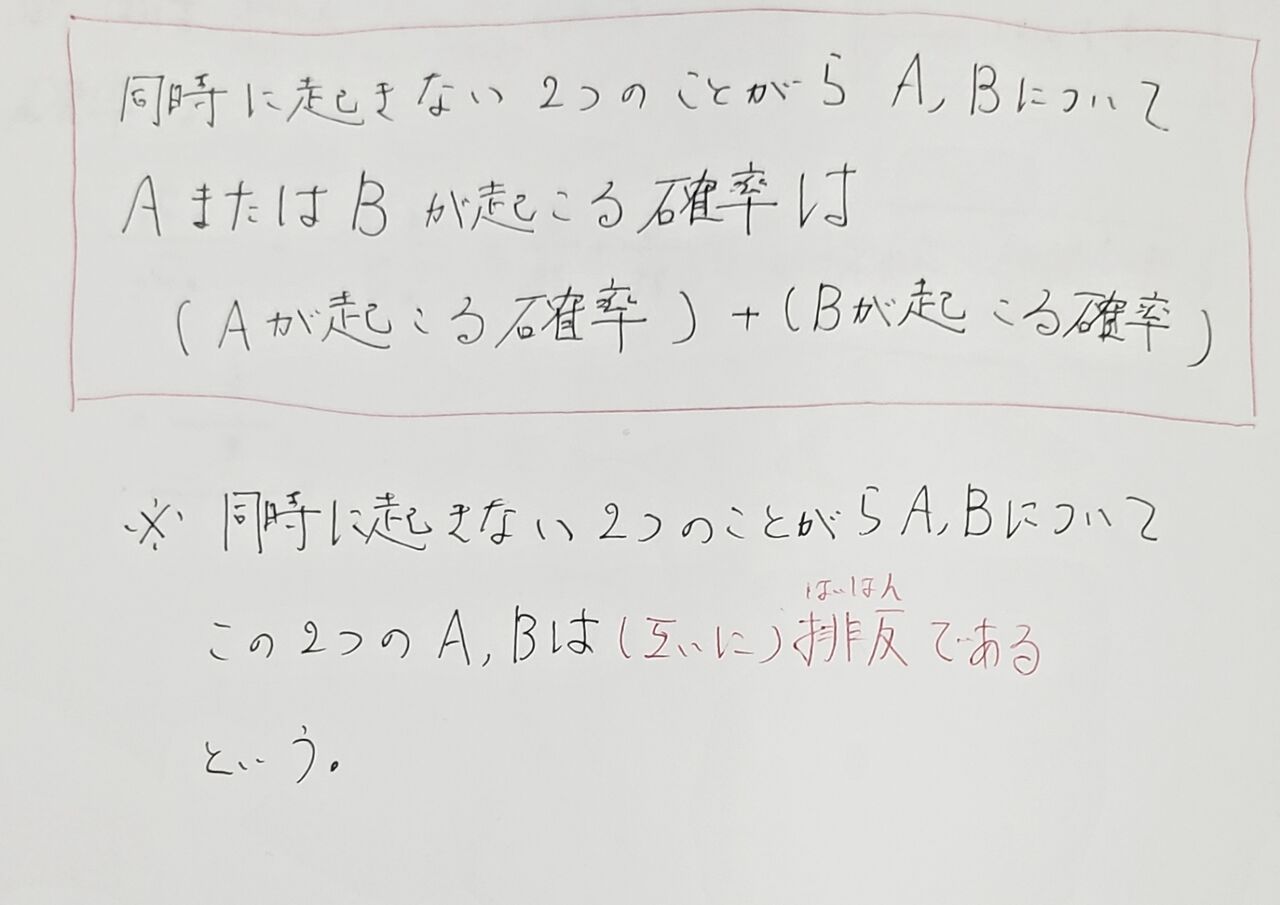 同時に起きない2つのことがら A, Bについて
AまたはBが起こる確率は
(Aが起こる確率) + (Bが起こる確率)
※ 同時に起きない2つのことがらA, Bについて
はいはん
この2つのA, Bは(互いに)排反である
という。